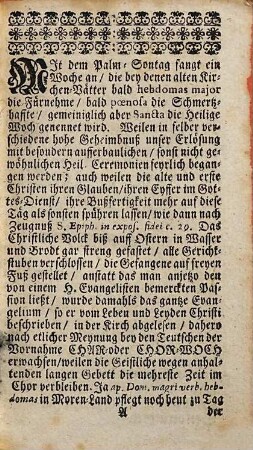 MIt dem Palm-Sontag fangt ein
Woche an / die bey denen alten Kir-
chen-Vätter bald hebdomas major
die Fürnehme / bald pœnosa die Schmertz-
haffte / gemeiniglich aber Sancta die Heilige
Woch genennet wird. Weilen in selber ver-
schiedene hohe Geheimbnuß unser Erlösung
mit besondern aufferbaulichen / sonst nicht ge-
wöhnlichen Heil. Ceremonien feyrlich began-
gen werden; auch weilen die alte und erste
Christen ihren Glauben / ihren Eyffer im Got-
tes-Dienst / ihre Bußfertigkeit mehr auf diese
Täg als sonsten spühren lassen / wie dann nach
Zeugnuß S. Epiph. in expos. fidei c. 29. Das
Christliche Volck biß auf Ostern in Wasser
und Brodt gar streng gefastet / alle Gerichts-
stuben verschlossen / die Gefangene auf freyen
Fuß gestellet / anstatt das man anjetzo den
von einem H. Evangelisten bemerckten Pas-
sion ließt / wurde damahls das gantze Evan-
gelium / so er vom Leben und Leyden Christi
beschrieben / in der Kirch abgelesen / dahero
nach etlicher Meynung bey den Teutschen der
Vornahme CHAR oder CHOR-WOCH
erwachsen / weilen die Geistlich wegen anhal-
tenden langen Gebett die mehreste Zeit im
Chor verbleiben. Ja ap. Dom. magri verb. heb-
domas in Moren-Land pflegt noch heut zu Tag
A der